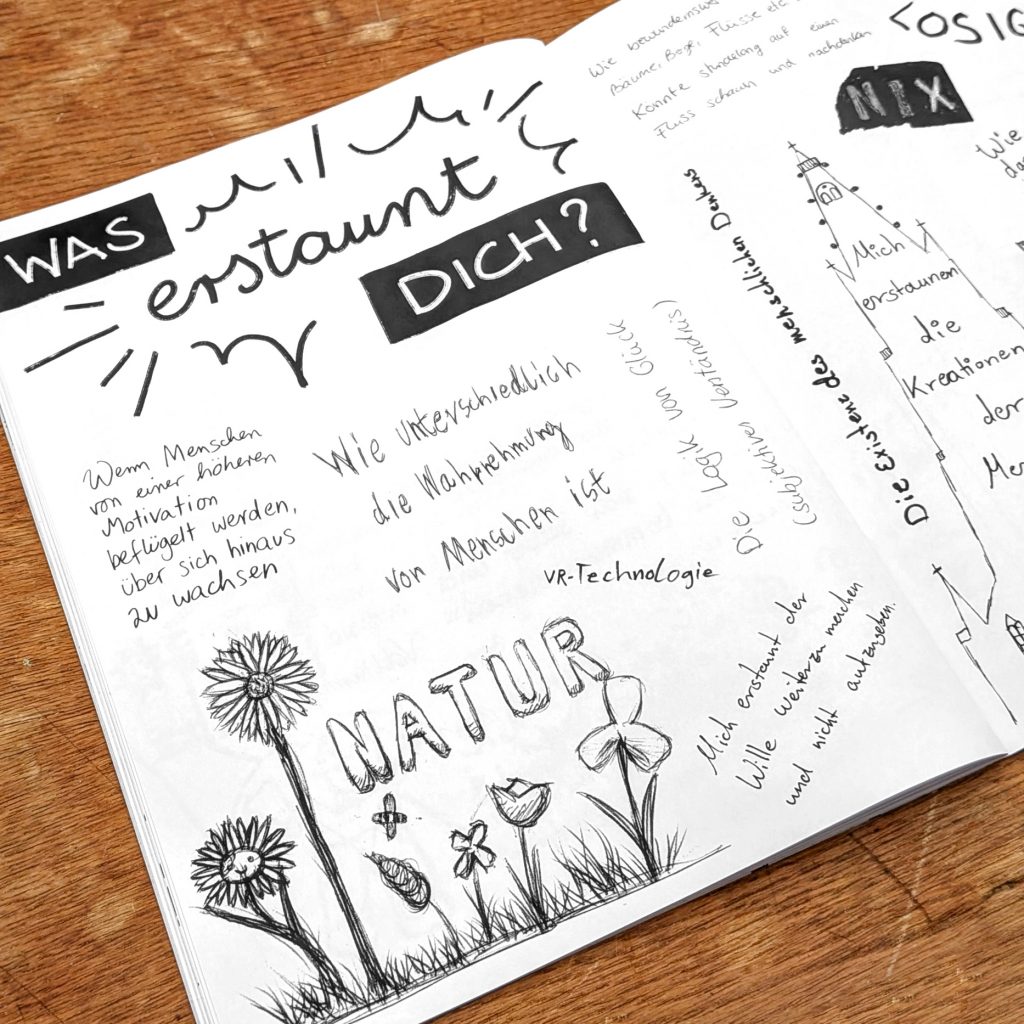 WAS
erstaunt
DICH?
Wenn Menschen
von einer höheren
Motivation
beflügelt werden,
über sich hinaus
zu wachsen
Wie unterschiedlich
die Wahrnehmung
von Menschen ist
Die Logik von Glück
(subjektives Verständnis)
VR-Technologie
NATUR
Mich erstaunt der
Wille weiterzumachen
und nicht aufzugeben.
Die Existenz des menschlichen Denkens
Wie
Bäume, Berge, Flüsse etc
Könnte stundenlang auf einen
Fluss schaun und nachdenken
LOSIG
NIX
Mich
erstaunen
die
Kreationen
der
Me
Wie
da